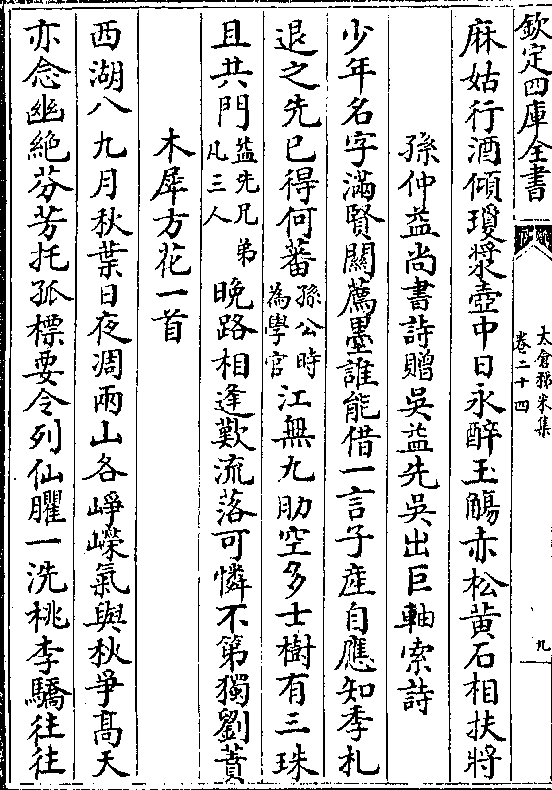 欽定四庫全書
太倉稊米集
卷二十四
九
麻姑行酒傾瓊漿壺中日永醉玉觴赤松黄石相扶將
孫仲益尚書詩贈吳益先吳出巨軸索詩
少年名字滿賢關薦墨誰能借一言子産自應知季札
退之先已得何蕃孫公時為學官江無九肋空多士樹有三珠
且共門益先兄弟凡三人晚路相逢歎流落可憐不第獨劉蕡
木犀方花一首
西湖八九月秋葉日夜凋兩山各崢嶸氣與秋爭髙天
亦念幽絶芬芳托孤標要令列仙臞一洗桃李驕往往